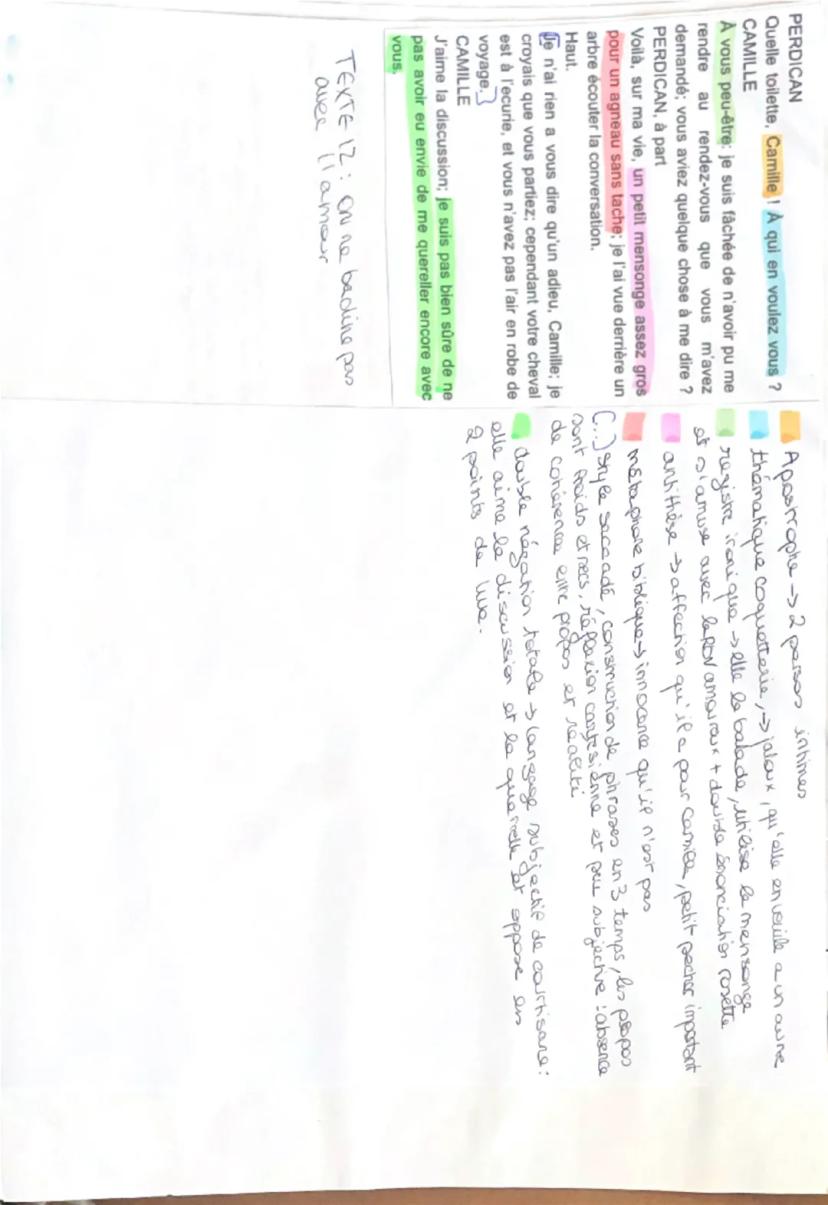 PERDICAN
Quelle toilette, Camille ! À qui en voulez vous ?
CAMILLE
À vous peu-être; je suis fâchée de n'avoir pu me
rendre au rendez-vous que vous m'avez
demandé; vous aviez quelque chose à me dire ?
PERDICAN, à part
Voilà, sur ma vie, un petit mensonge assez gros
pour un agneau sans tache; je l'ai vue derrière un
arbre écouter la conversation.
Haut.
[Je n'ai rien a vous dire qu'un adieu, Camille; je
croyais que vous partiez; cependant votre cheval
est à l'ecurie, et vous n'avez pas l'air en robe de
voyage.]
CAMILLE
J'aime la discussion; je suis pas bien sûre de ne
pas avoir eu envie de me quereller encore avec
vous.
TEXTE 12 : on ne badine pas
avec l'amour
Apostrophe → 2 persos intimes
thématique coquetterie, → jaloux, qu'elle en veuille a un autre
registre ironique → elle le balade, utilise le mensonge
et s'amuse avec le amoureux + double énonciation rosette
antithèse → affection qu'il a pour Camille, petit pecher important
métaphore biblique → innocence qu'il n'est pas
(...) style saccadé, construction de phrases en 3 temps, les propos
sont froids et secs, réflexion cartesiénne et peu subjective : absence
de cohérence entre propos et réalité
double négation totale → langage subjectif de courtisane :
elle aime la discussion et la querelle et oppose ses
2 points de vue.